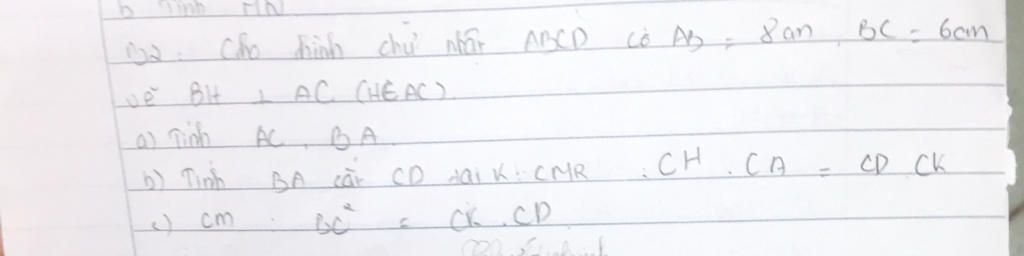 b Tính MN
Bài 2: Cho hình chữ nhật ABCD có AB = 8cm, BC = 6cm
vẽ BH ⊥ AC (H∈AC)
a) Tính AC, BA
b) Tính BA cắt CD tại K: CMR : CH . CA = CD CK
c) cm : BC² = CK . CD